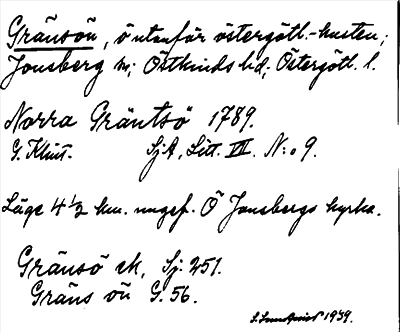 Gränsön, ö utanför östergötl.-kusten;
Jonsberg sn; Östkinds hd; Östergötl. l.
Norra Gräntsö 1789.
G. Klint. SjA, Litt. III. N:o 9.
Läge 4 1/2 km. ungef. Ö Jonsbergs kyrka.
Gränsö ek, Sj. 251.
Gräns ön G. 56.
1939.